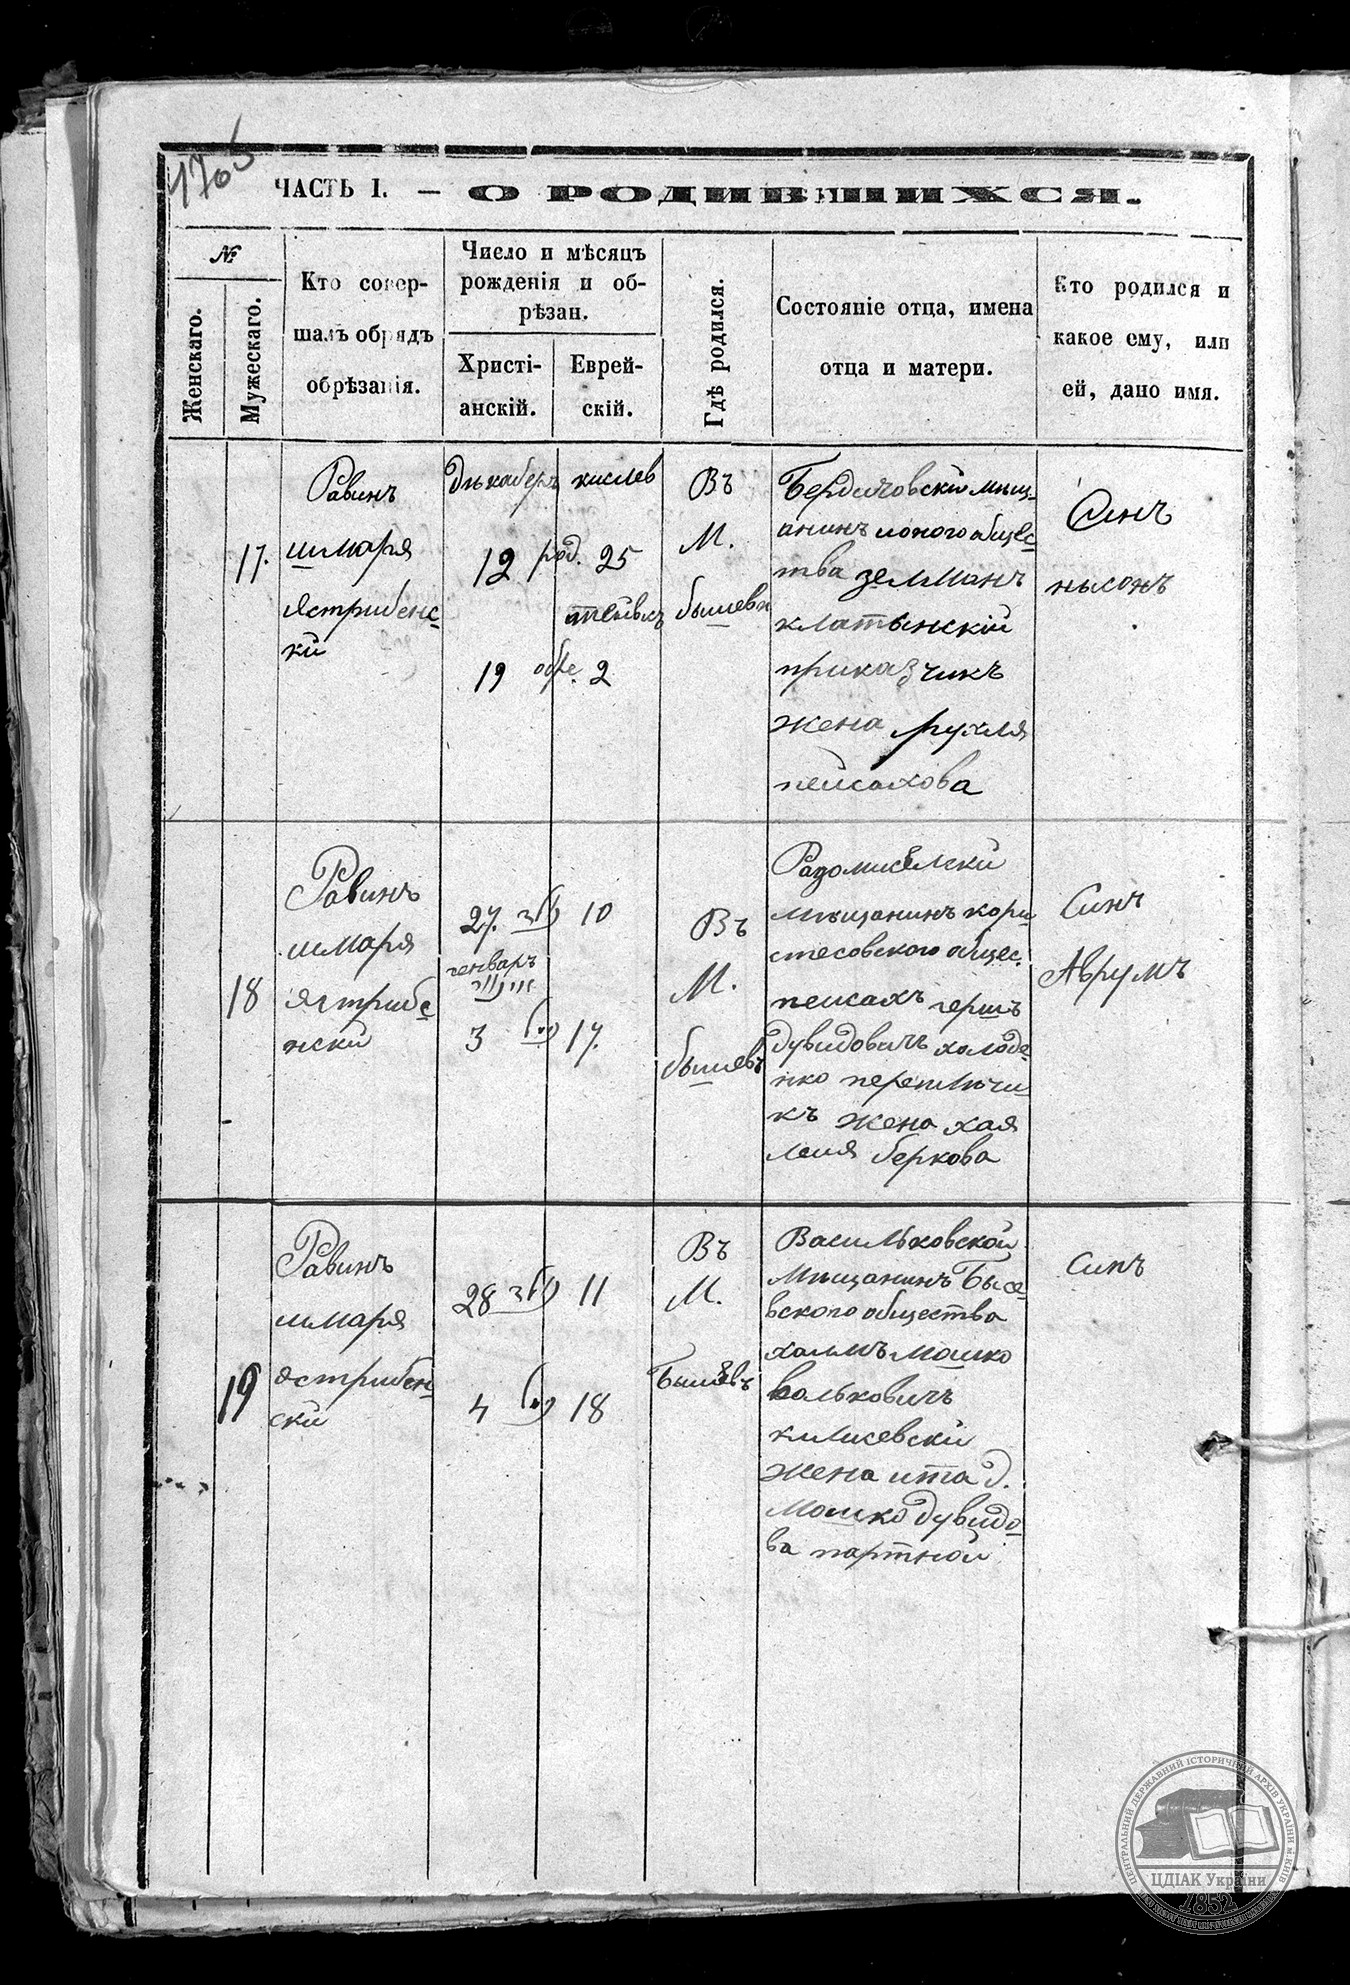 170б
ЧАСТЬ I. — О РОДИВШИХСЯ.
№
Женскаго.
Мужескаго.
Кто совер-
шалъ обрядъ
обрѣзанія.
Число и мѣсяцъ
рожденія и об-
рѣзан.
Христі-
анскій.
Еврей-
скій.
Гдѣ родился.
Состояніе отца, имена
отца и матери.
Кто родился и
какое ему, или
ей, дано имя.
17.
Равинъ
шмаря
Ястрибенс-
кій
12 род. 25
19 обре. 2
кислев
Въ
М.
Бердичовскій мѣщ-
анинъ
тва земманъ
приказчикъ
жена рухля
пейсахова
Синъ
нысонъ
18
Равинъ
шмаря
Ястрибе-
нски
27. 10
генваръ
3 17.
Въ
М.
бышевъ
Радомисельски
Мѣщанинъ кори-
стесовского общес.
пейсахъ гершъ
дувидовичъ холоде-
нко переплѣтчи-
къ жена хая
лея беркова
Синъ
Аврумъ
19
Равинъ
шмаря
Ястрибен-
ски
28 11
4 18
Въ
М.
Бышевъ
Васильковской
Мѣщанинъ Быше-
вского общества
хаимъ мошко
вольковичъ
жена ита д.
Мошко дувидо-
ва партной
Синъ
ЦЕНТРАЛЬНИЙ ДЕРЖАВНИЙ ІСТОРИЧНИЙ АРХІВ УКРАЇНИ М. КИЇВ
ЦДІАК України
1852